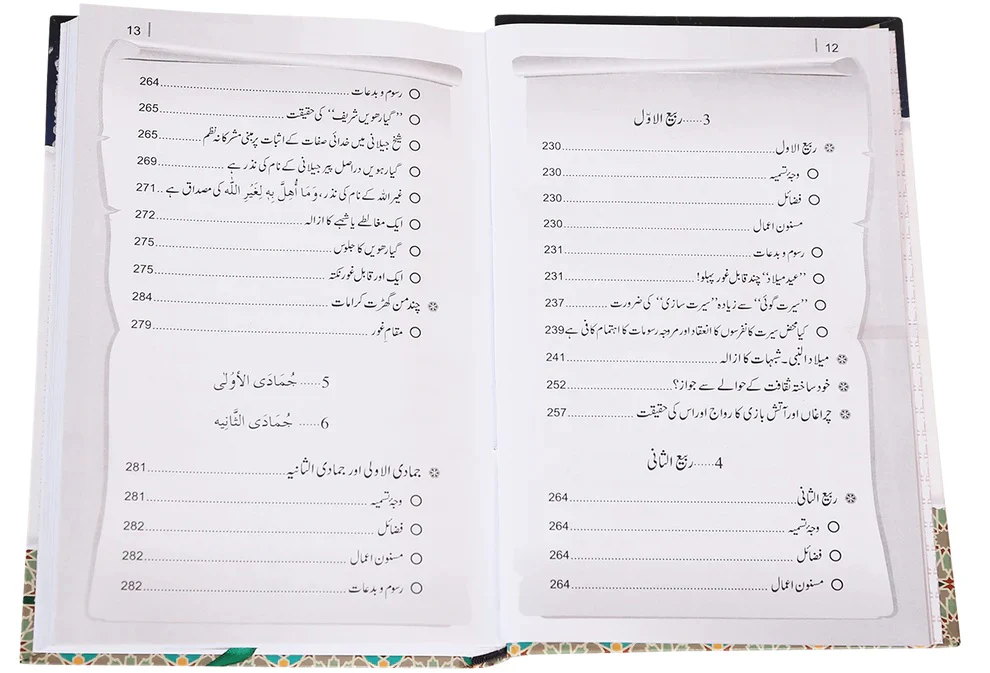 12
3......ربیع الاوّل
ربیع الاول......230
وجۂ تسمیہ......230
فضائل......230
مسنون اعمال......230
رسوم و بدعات......231
’’عید میلاد‘‘ چند قابل غور پہلو!......231
’’سیرت گوئی‘‘ سے زیادہ ’’سیرت سازی‘‘ کی ضرورت......237
کیا محض سیرت کانفرسوں کا انعقاد اور مروجہ رسومات کا اہتمام کافی ہے 239
میلاد النبی۔ شبہات کا ازالہ......241
خود ساختہ ثقافت کے حوالے سے جواز؟......252
چراغاں اور آتش بازی کا رواج اور اس کی حقیقت......257
4......ربیع الثانی
ربیع الثانی......264
وجۂ تسمیہ......264
فضائل......264
مسنون اعمال......264
13
رسوم و بدعات......264
’’گیارھویں شریف‘‘ کی حقیقت......265
شیخ جیلانی میں خدائی صفات کے اثبات پر مبنی مشرکانہ نظم......265
گیارہویں دراصل پیر جیلانی کے نام کی نذر ہے......269
غیر اللہ کے نام کی نذر، وَمَا أُهِلَّ بِهٖ لِغَيْرِ اللّٰه کی مصداق ہے..271
ایک مغالطے یا شبہے کا ازالہ......272
گیارھویں کا جلوس......275
ایک اور قابل غور نکتہ......275
چند من گھڑت کرامات......284
مقامِ غور......279
5......جُمَادَى الأُوْلٰى
6......جُمَادَى الثَّانِيه
جمادی الاولی اور جمادی الثانیہ......281
وجۂ تسمیہ......281
فضائل......282
مسنون اعمال......282
رسوم و بدعات......282